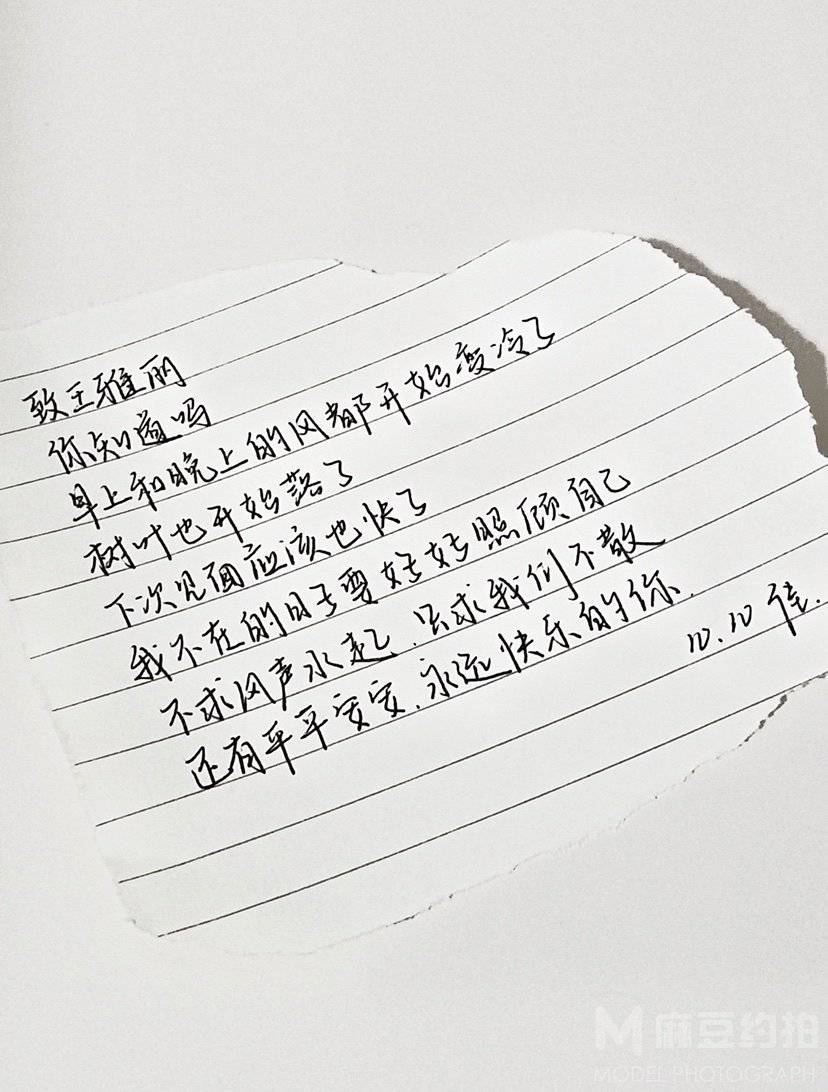 致王雅丽
你知道吗
早上和晚上的风都开始变冷了
树叶也开始落了
下次见面应该也快了
我不在的日子要好好照顾自己
不求风声水起、只求我们不散
还有平平安安、永远快乐的你.
10.10 佳.
M 麻豆约拍
MODEL PHOTOGRAPH